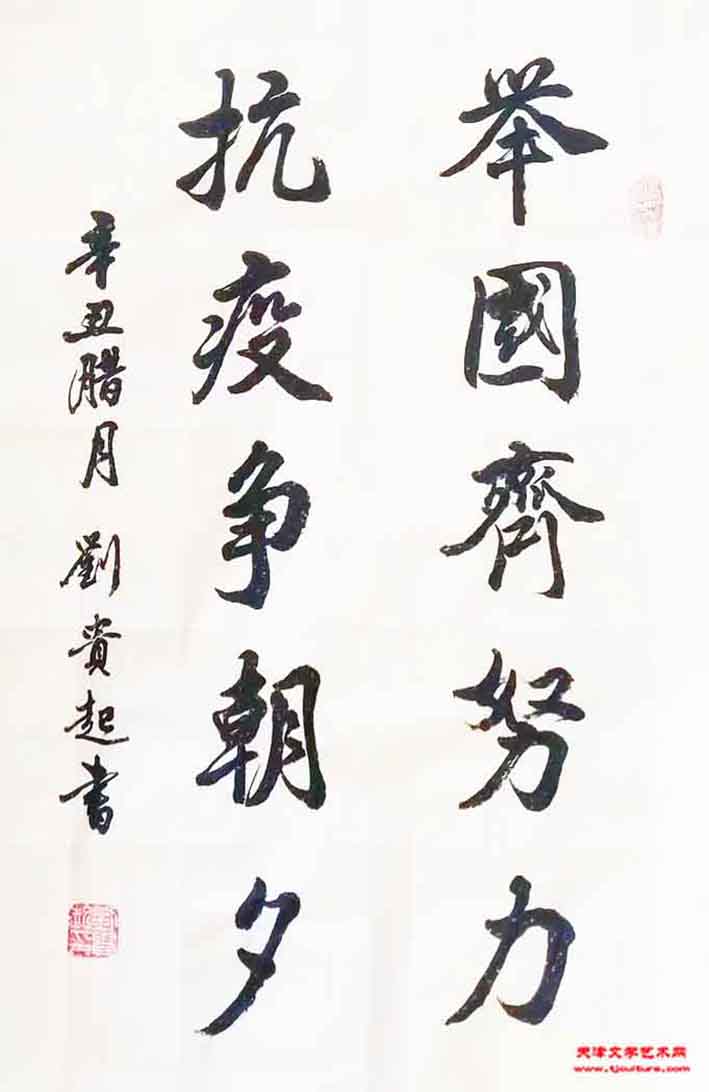 举國齊努力
抗疫争朝夕
辛丑腊月 劉貴起書
天津文学艺术网
www.tjculture.com